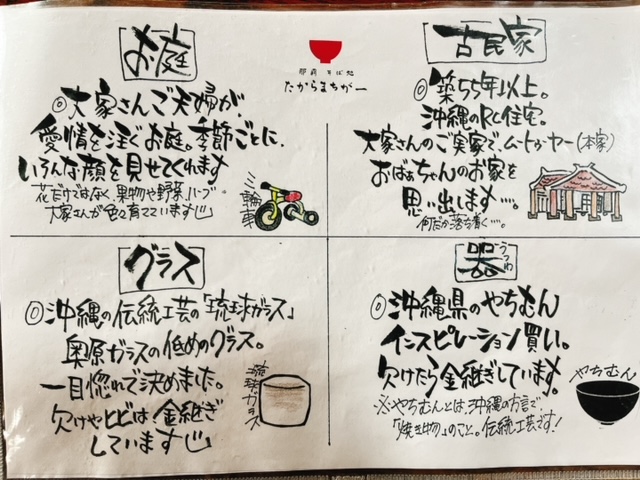 お庭
◎大家さんご夫婦が
愛情を注ぐお庭。季節ごとに、
いろんな顔を見せてくれます
花だけではなく、果物や野菜、ハーブ
大家さんが色々育てています
三輪車
そば処
たからまちがー
古民家
◎築55年以上。
沖縄のRC住宅。
大家さんのご実家で、ムートゥーヤー(本家)
おばぁちゃんのお家を
思い出します….
何だか落ち着く….
グラス
◎沖縄の伝統工芸の「琉球ガラス」
奥原ガラスの低めのグラス。
一目惚れで決めました。
欠けやヒビは金継ぎ
しています
琉球ガラス
器
うつわ
◎沖縄県のやちむん
インスピレーション買い。
欠けたら金継ぎしています。
※やちむんとは、沖縄の方言で
「焼き物」のこと。伝統工芸です!
やちむん